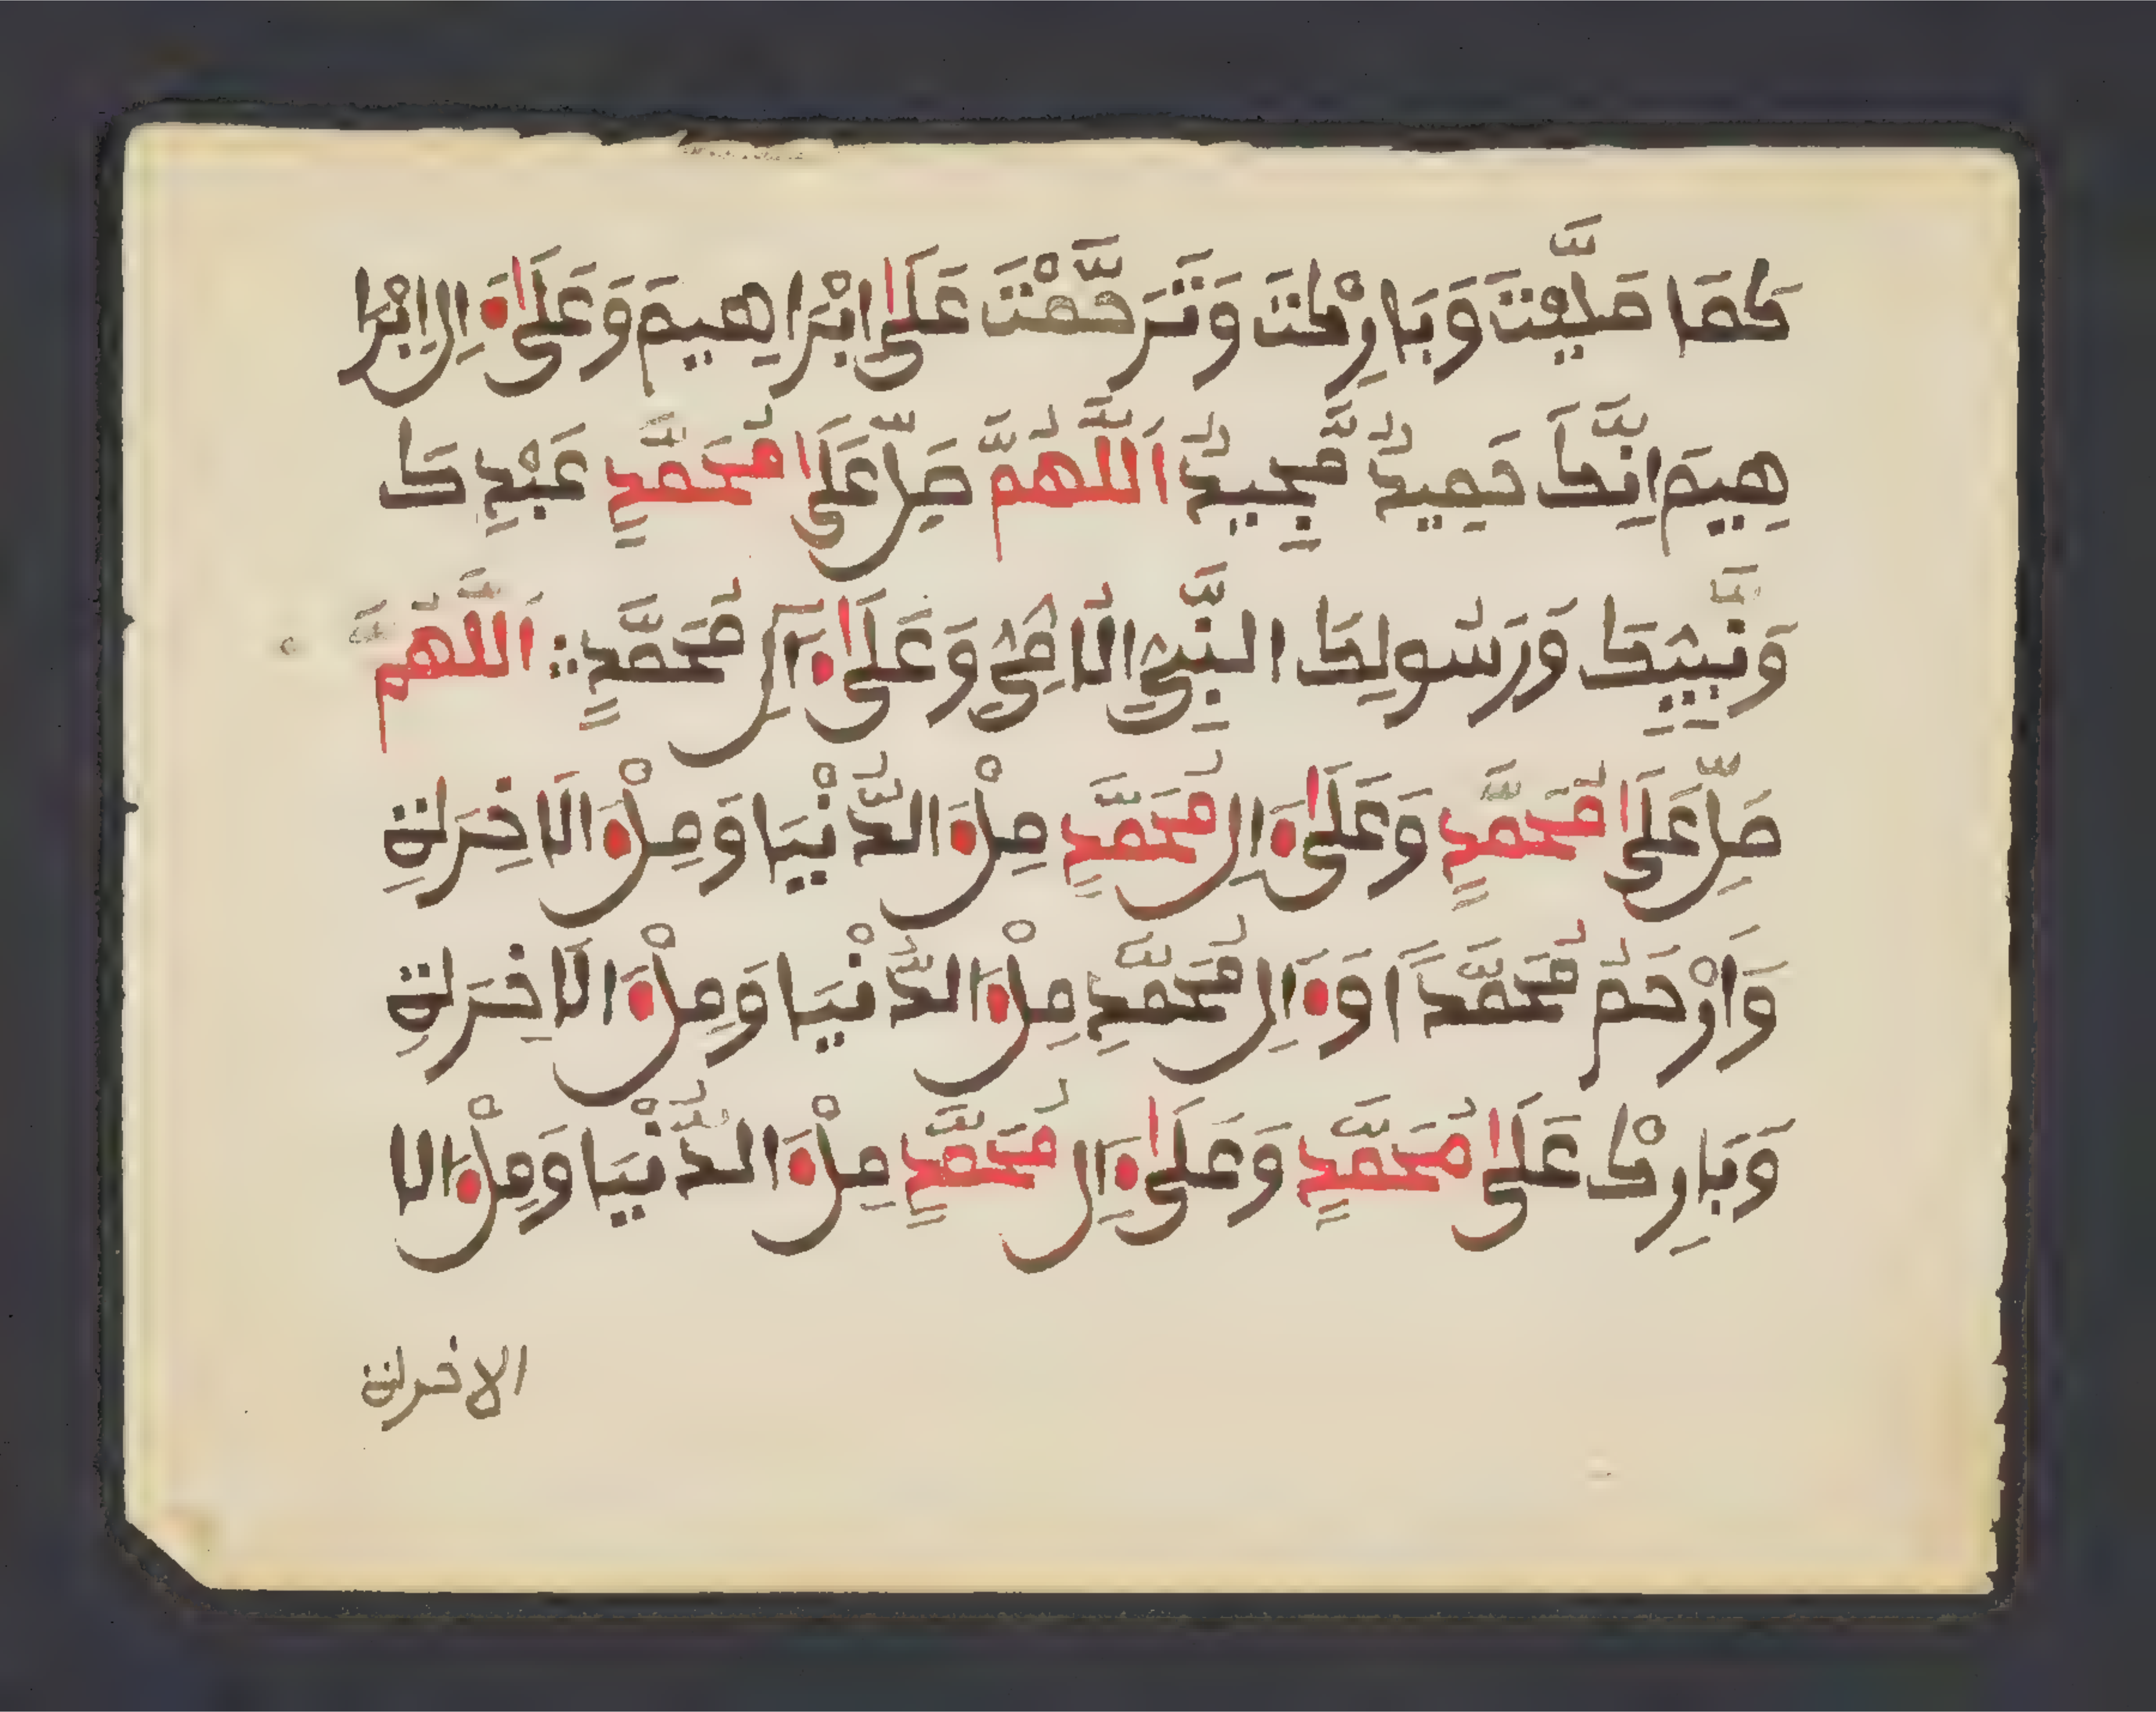 كَمَا صَلَّيْتَ وَبَارَكْتَ وَتَرَحَّمْتَ عَلَىٰ اِبْرَاهِيمَ وَعَلَىٰ ءَالِ اِبْرَا
هِيمَ اِنَّكَ حَمِيدٌ مَّجِيدٌ اَللَّهُمَّ صَلِّ عَلَىٰ مُحَمَّدٍ عَبْدِكَ
وَنَبِيِّكَ وَرَسُولِكَ النَّبِيِّ الْاُمِّيِّ وَعَلَىٰ ءَالِ مُحَمَّدٍ ؞ اَللَّهُمَّ
صَلِّ عَلَىٰ مُحَمَّدٍ وَعَلَىٰ ءَالِ مُحَمَّدٍ مِلْءَ الدُّنْيَا وَمِلْءَ الَاخِرَةِ
وَارْحَمْ مُحَمَّداً وَءَالِ مُحَمَّدٍ مِلْءَ الدُّنْيَا وَمِلْءَ الَاخِرَةِ
وَبَارِكْ عَلَىٰ مُحَمَّدٍ وَعَلَىٰ ءَالِ مُحَمَّدٍ مِلْءَ الدُّنْيَا وَمِلْءَ الا
الاخرة